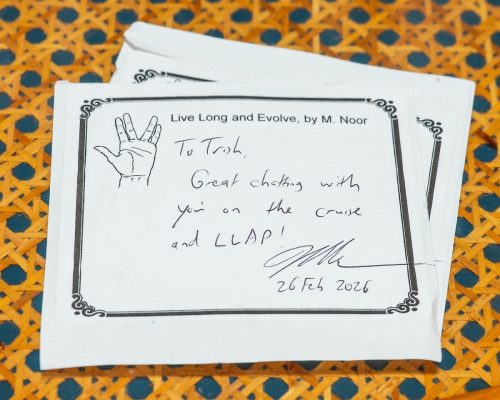 Live Long and Evolve, by M. Noor
To Trish,
Great chatting with
you on the cruise
and LLAP!
26 Feb 2026